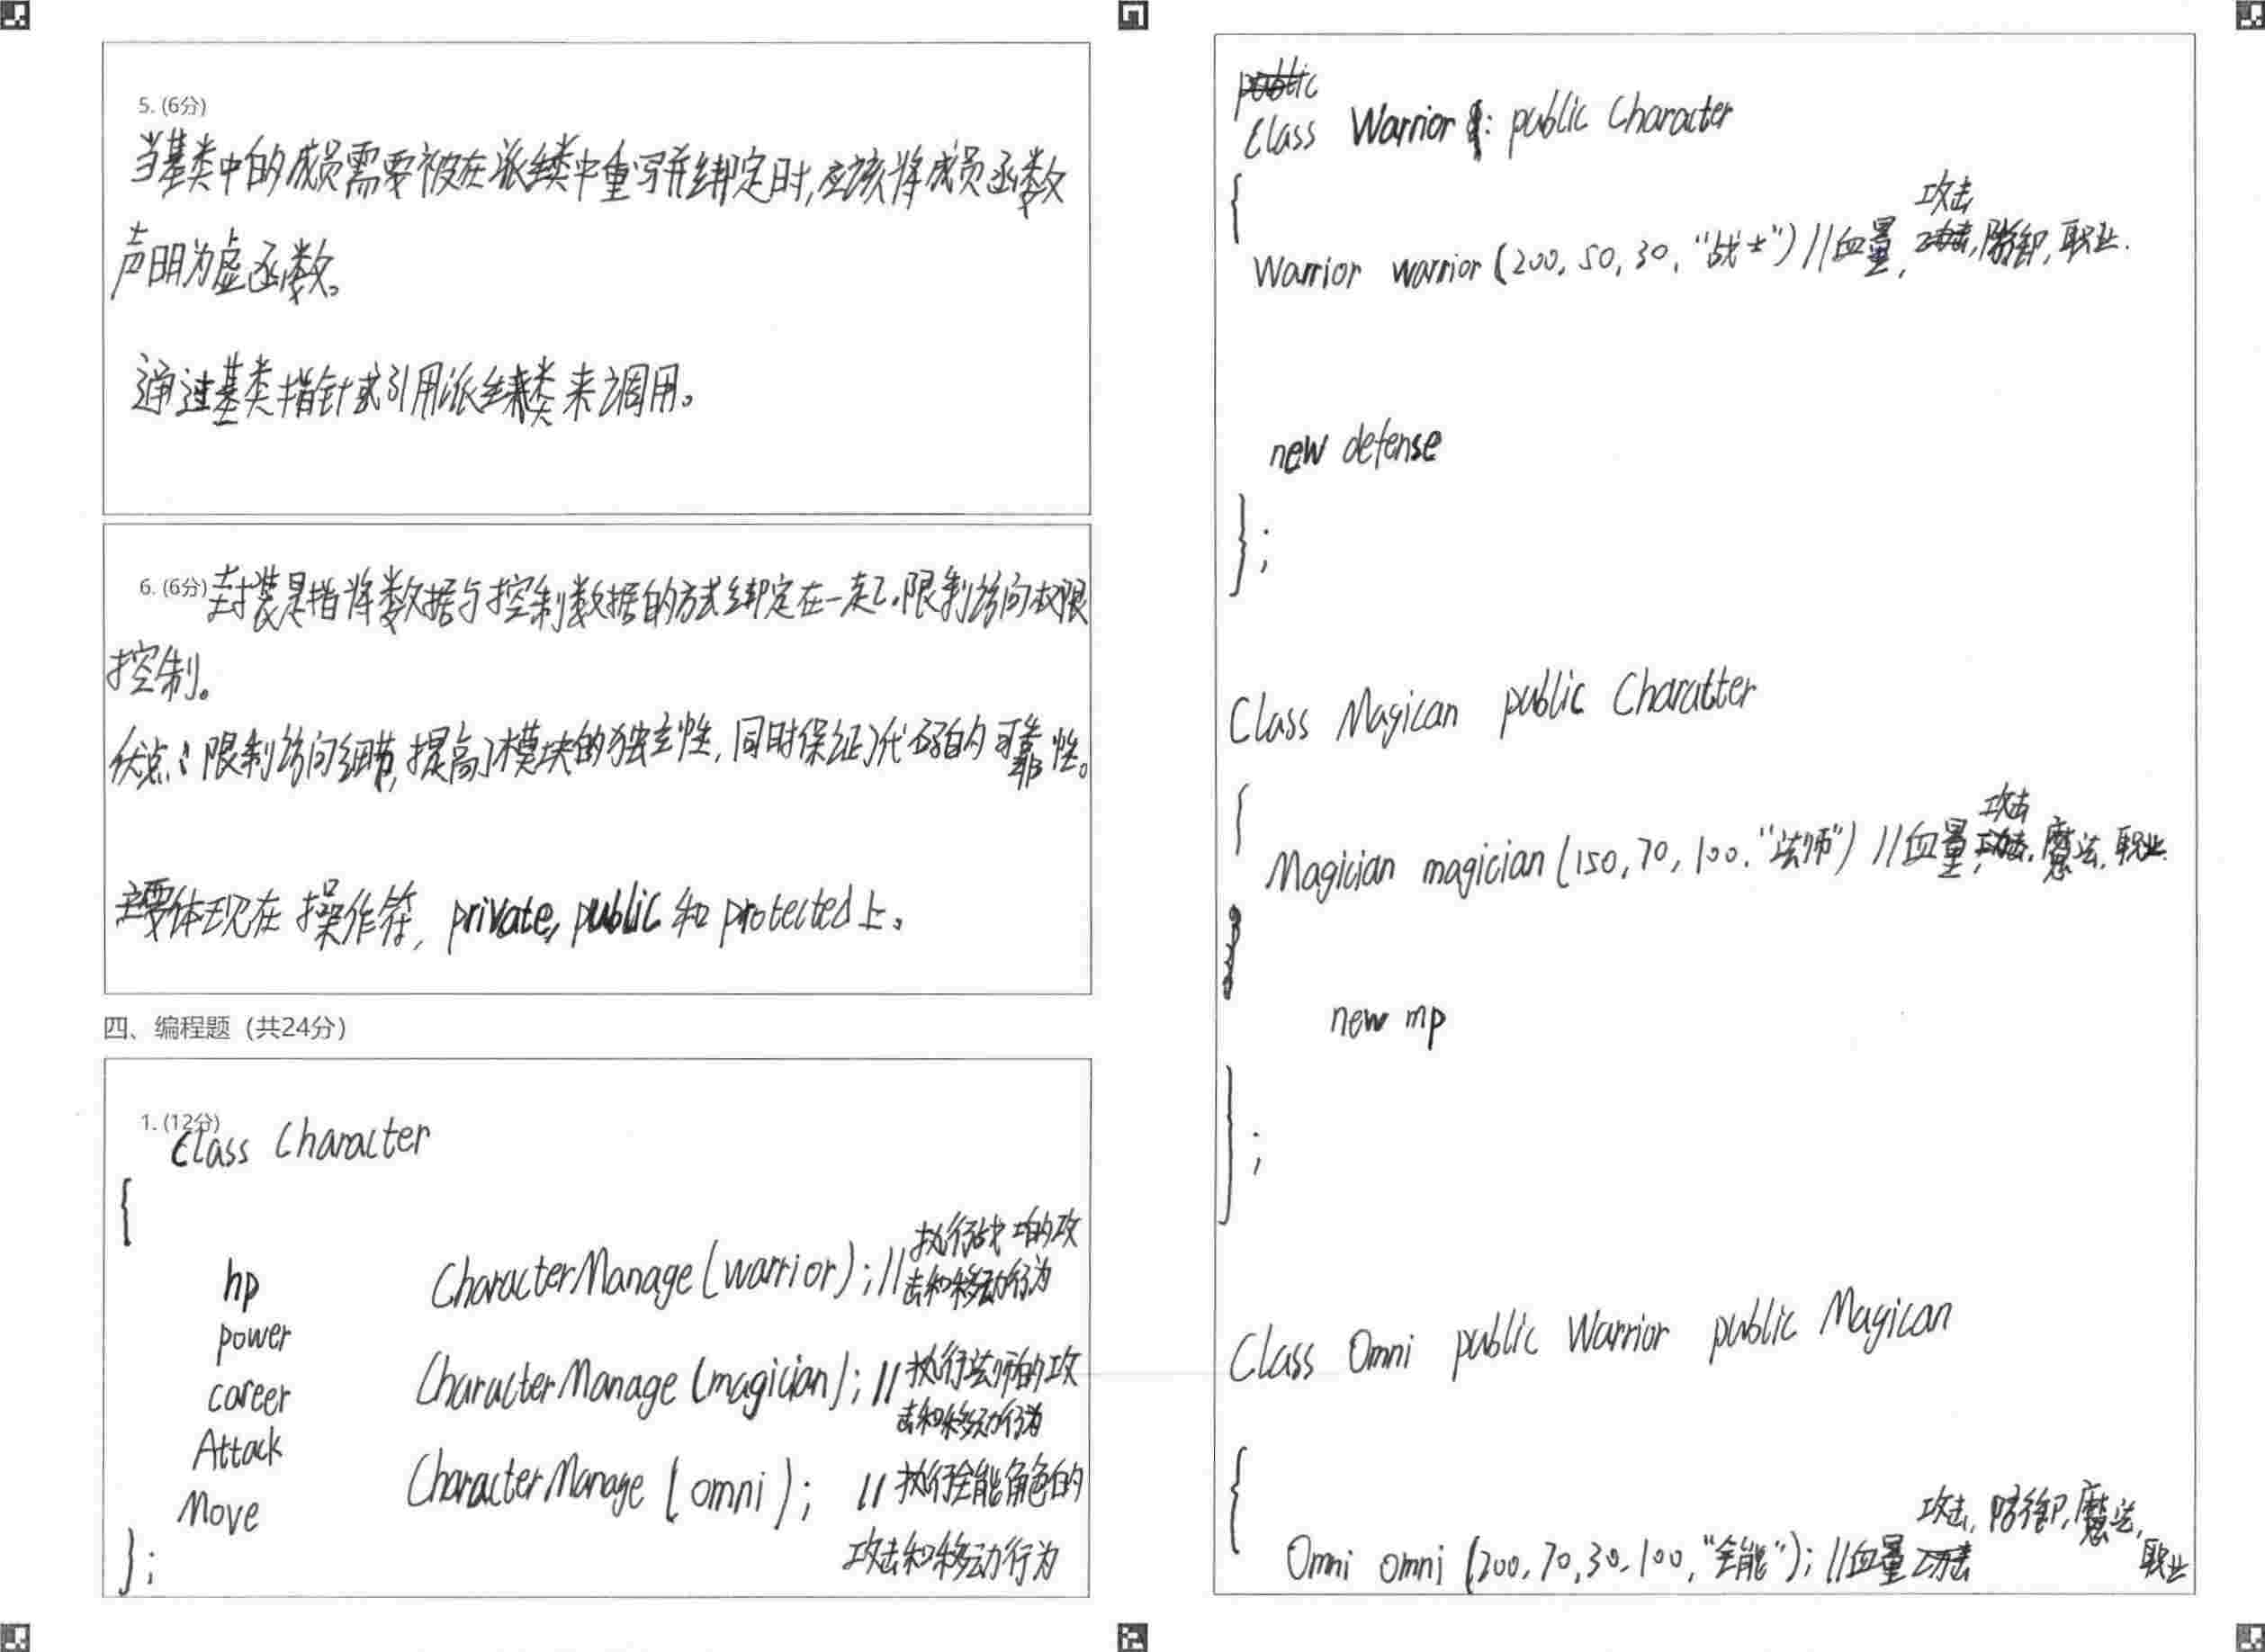 5. (6分)
当基类中的成员需要被在派生类中重写并绑定时,应该将成员函数
声明为虚函数。
通过基类指针或引用派生类来调用。
6. (6分) 封装是指将数据与控制数据的方式绑定在一起。限制访问权限
控制。
优点:限制访问细节,提高了模块的独立性,同时保证了代码的可靠性。
主要体现在操作符,private,public和protected上。
四、编程题(共24分)
1. (12分)
Class Character
{
hp
power
career
Attack
Move
};
CharacterManage(warrior); //执行战士的攻
击和移动行为
CharacterManage(magician); //执行法师的攻
击和移动行为
CharacterManage(omni); //执行全能角色的
攻击和移动行为
public
Class Warrior : public Character
{
Warrior warrior(200, 50, 30, "战士") //血量,攻击,防御,职业.
new defense
};
Class Magican public Charactter
{
Magician magician(150, 70, 100, "法师") //血量,攻击,魔法,职业.
new mp
};
Class Omni public Warrior public Magican
{
Omni omni (200, 70, 30, 100, "全能"); //血量 攻击,防御,魔法,
职业